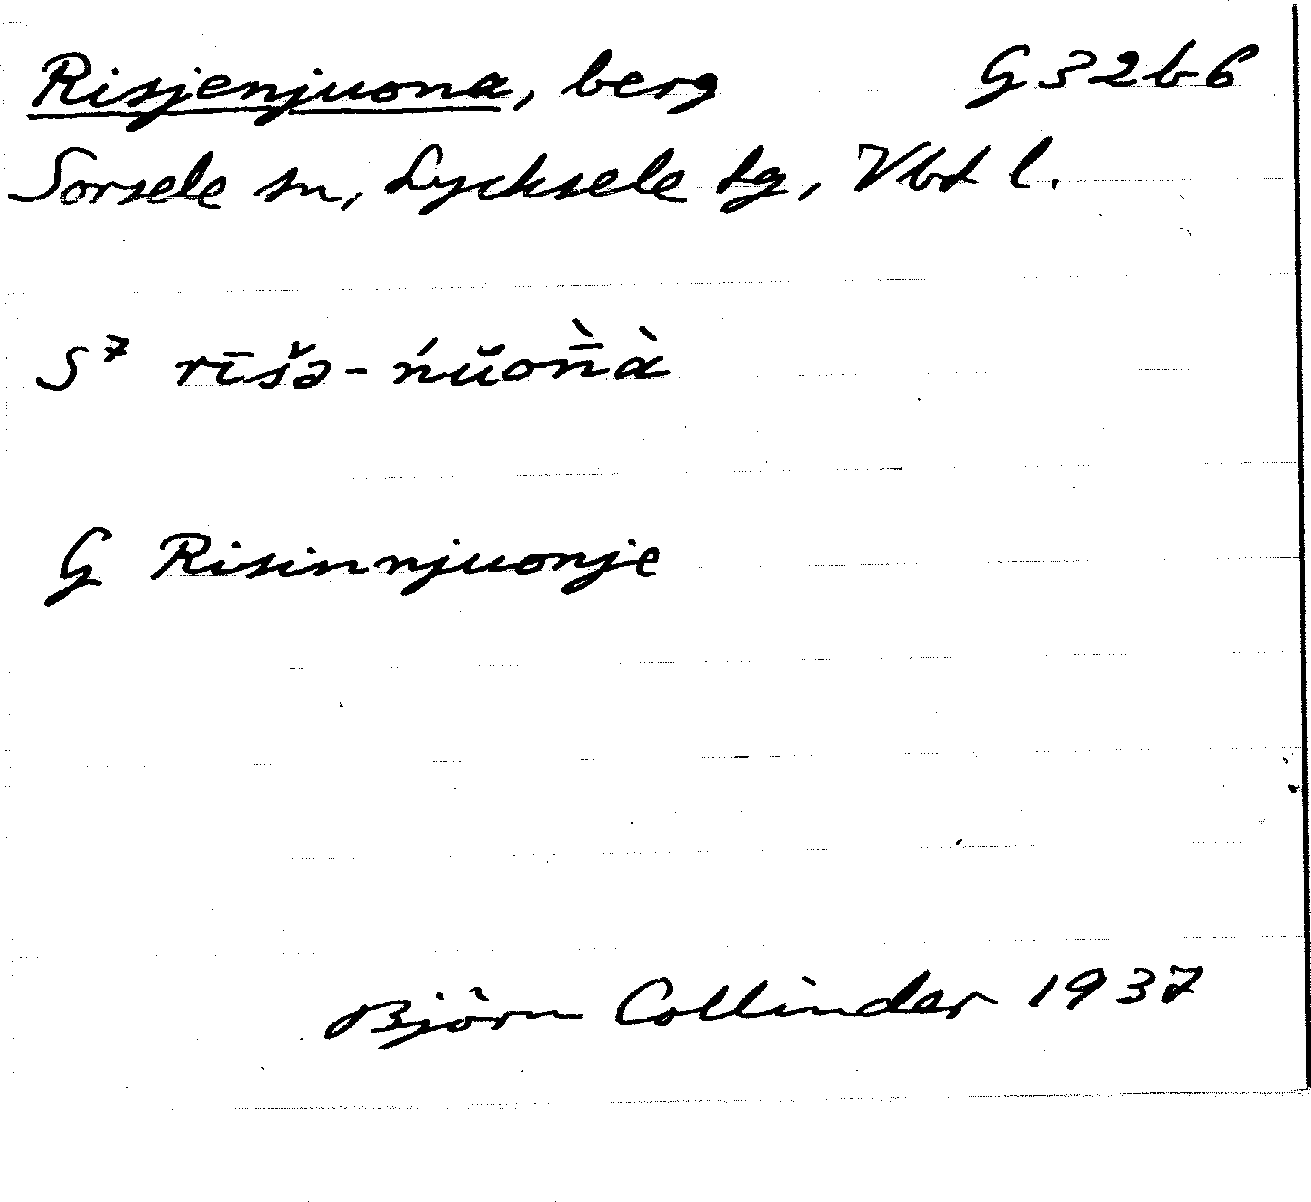 Risjenjuona, berg G 32 b 6
Sorsele sn, Lycksele tg, Vbt l.
S⁷ rīšə-ńŭōn̄̀à
G Risinnjuonje
Björn Collinder 1937